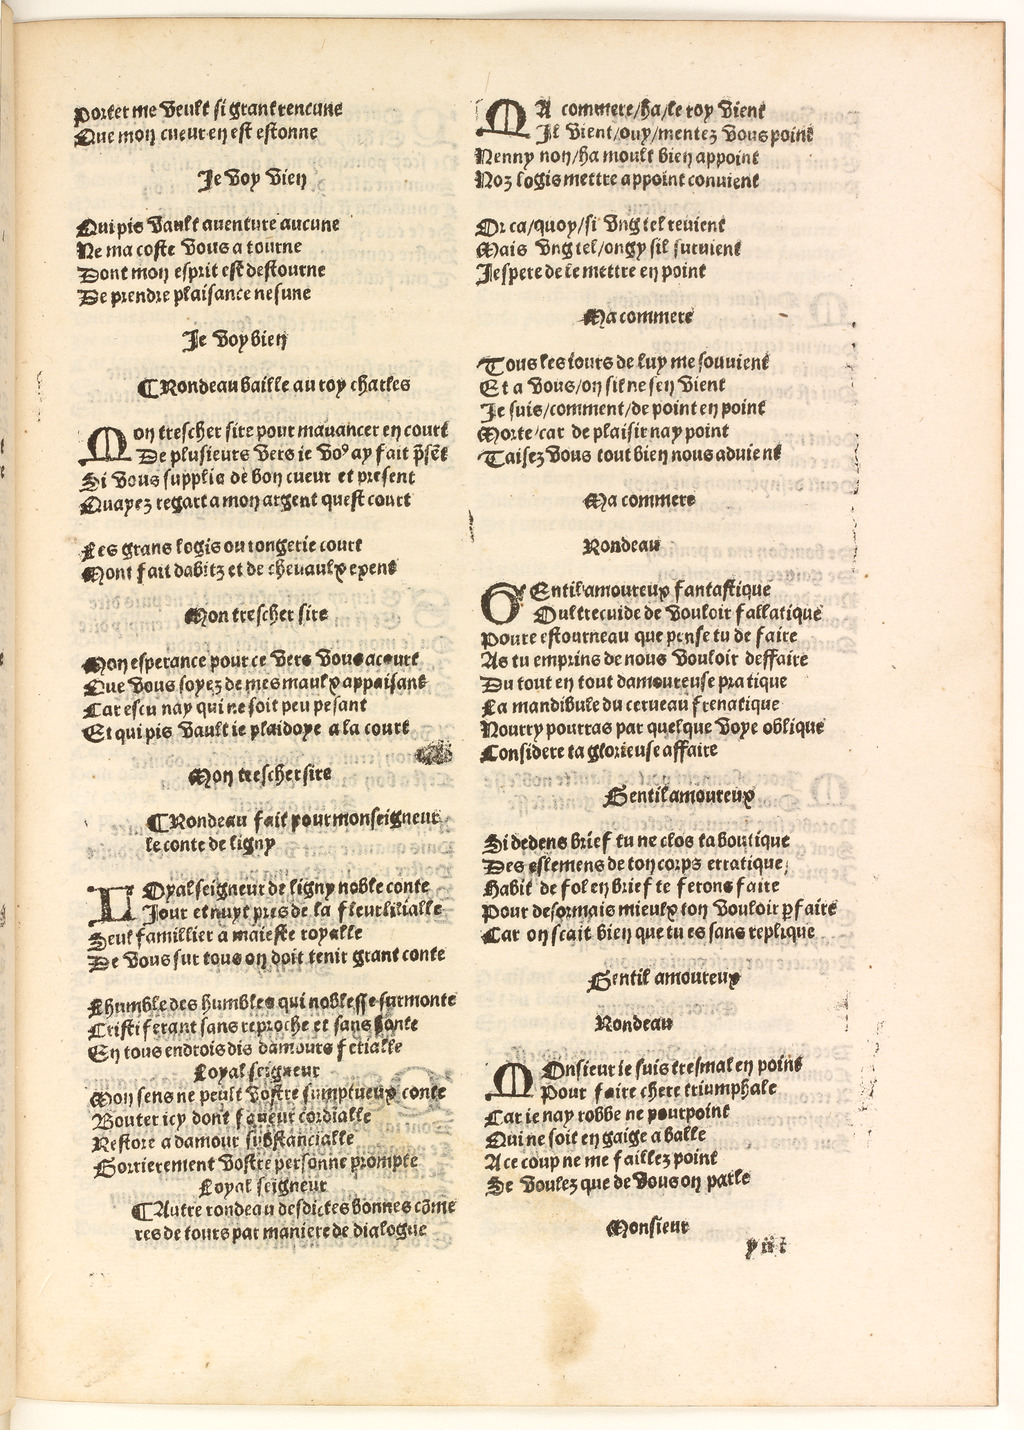 Porter me veult si grant rencune
Que mon cueur en est estonne
Je voy bien
Qui pis vault aventure aucune
Ne ma coste vous a tourne
Dont mon esprit est destourne
De prendre plaisance nesune
Je voy bien
Rondeau baille au roy charles
Mon trescher sire pour mavancer en court
De plusieurs vers ie voꝰ ay fait p̃sẽt
Si vous supplie de bon cueur et present
Quayez regart a mon argent quest court
Les grans logis ou rongerie court
Mont fait dabitz et de chevaulx exent
Mon trescher sire
Mon esperance pour ce vers vous acourt
Que vous soyez de mes maulx appaisant
Car escu nay qui ne soit peu pesant
Et qui pis vault ie plaidoye a la court
Mon trescher sire
Rondeau fait pour monseigneur
le conte de ligny
Loyal seigneur de ligny noble conte
Jour et nuyt pres de la fleur lilialle
Seul famillier a maieste royalle
De vous sur tous on doit tenir grant conte
Lhumble des humbles qui noblesse surmonte
Cristi ferant sans reproche et sans honte
En tous endrois dis damours ferialle
Loyal seigneur
Mon sens ne peult vostre sumptueux conte
Bouter icy dont faveur cordialle
Restore a damour substancialle
Gorrierement vostre personne prompte
Loyal seigneur
Autre rondeau desdictes bonnes cõme
res de tours par maniere de dialogue
MA commere/ha/le roy vient
Il vient/ouy/mentez vous point
Nenny non/ha moult bien appoint
Noz logis mettre appoint convient
Or ca/quoy/si ung tel revient
Mais ung tel/ongy sil survient
Jespere de le mettre en point
Ma commere
Tous les iours de luy me souvient
Et a vous/on sil ne sen vient
Je suis/comment/de point en point
Morte/car de plaisir nay point
Taisez vous tout bien nous advient
Ma commere
Rondeau
GEntil amoureux fantastique
Oultrecuide de vouloir fallatique
Povre estourneau que pense tu de faire
As tu emprins de nous vouloir deffaire
Du tout en tout damoureuse pratique
La mandibule du cerveau frenatique
Nourry pourras par quelque voye oblique
Considere ta glorieuse affaire
Gentil amoureux
Si dedens brief tu ne clos ta boutique
Des eslemens de ton corps erratique
Habit de fol en brief te ferons faire
Pour desormais mieulx ton vouloir ꝑfaire
Car on scait bien que tu es sans replique
Gentil amoureux
Rondeau
MOnsieur ie suis tresmal en point
Pour faire chere triumphale
Car ie nay robbe ne pourpoint
Qui ne soit en gaige a balle
A ce coup ne me faillez point
Se voulez que de vous on parle
Monsieur